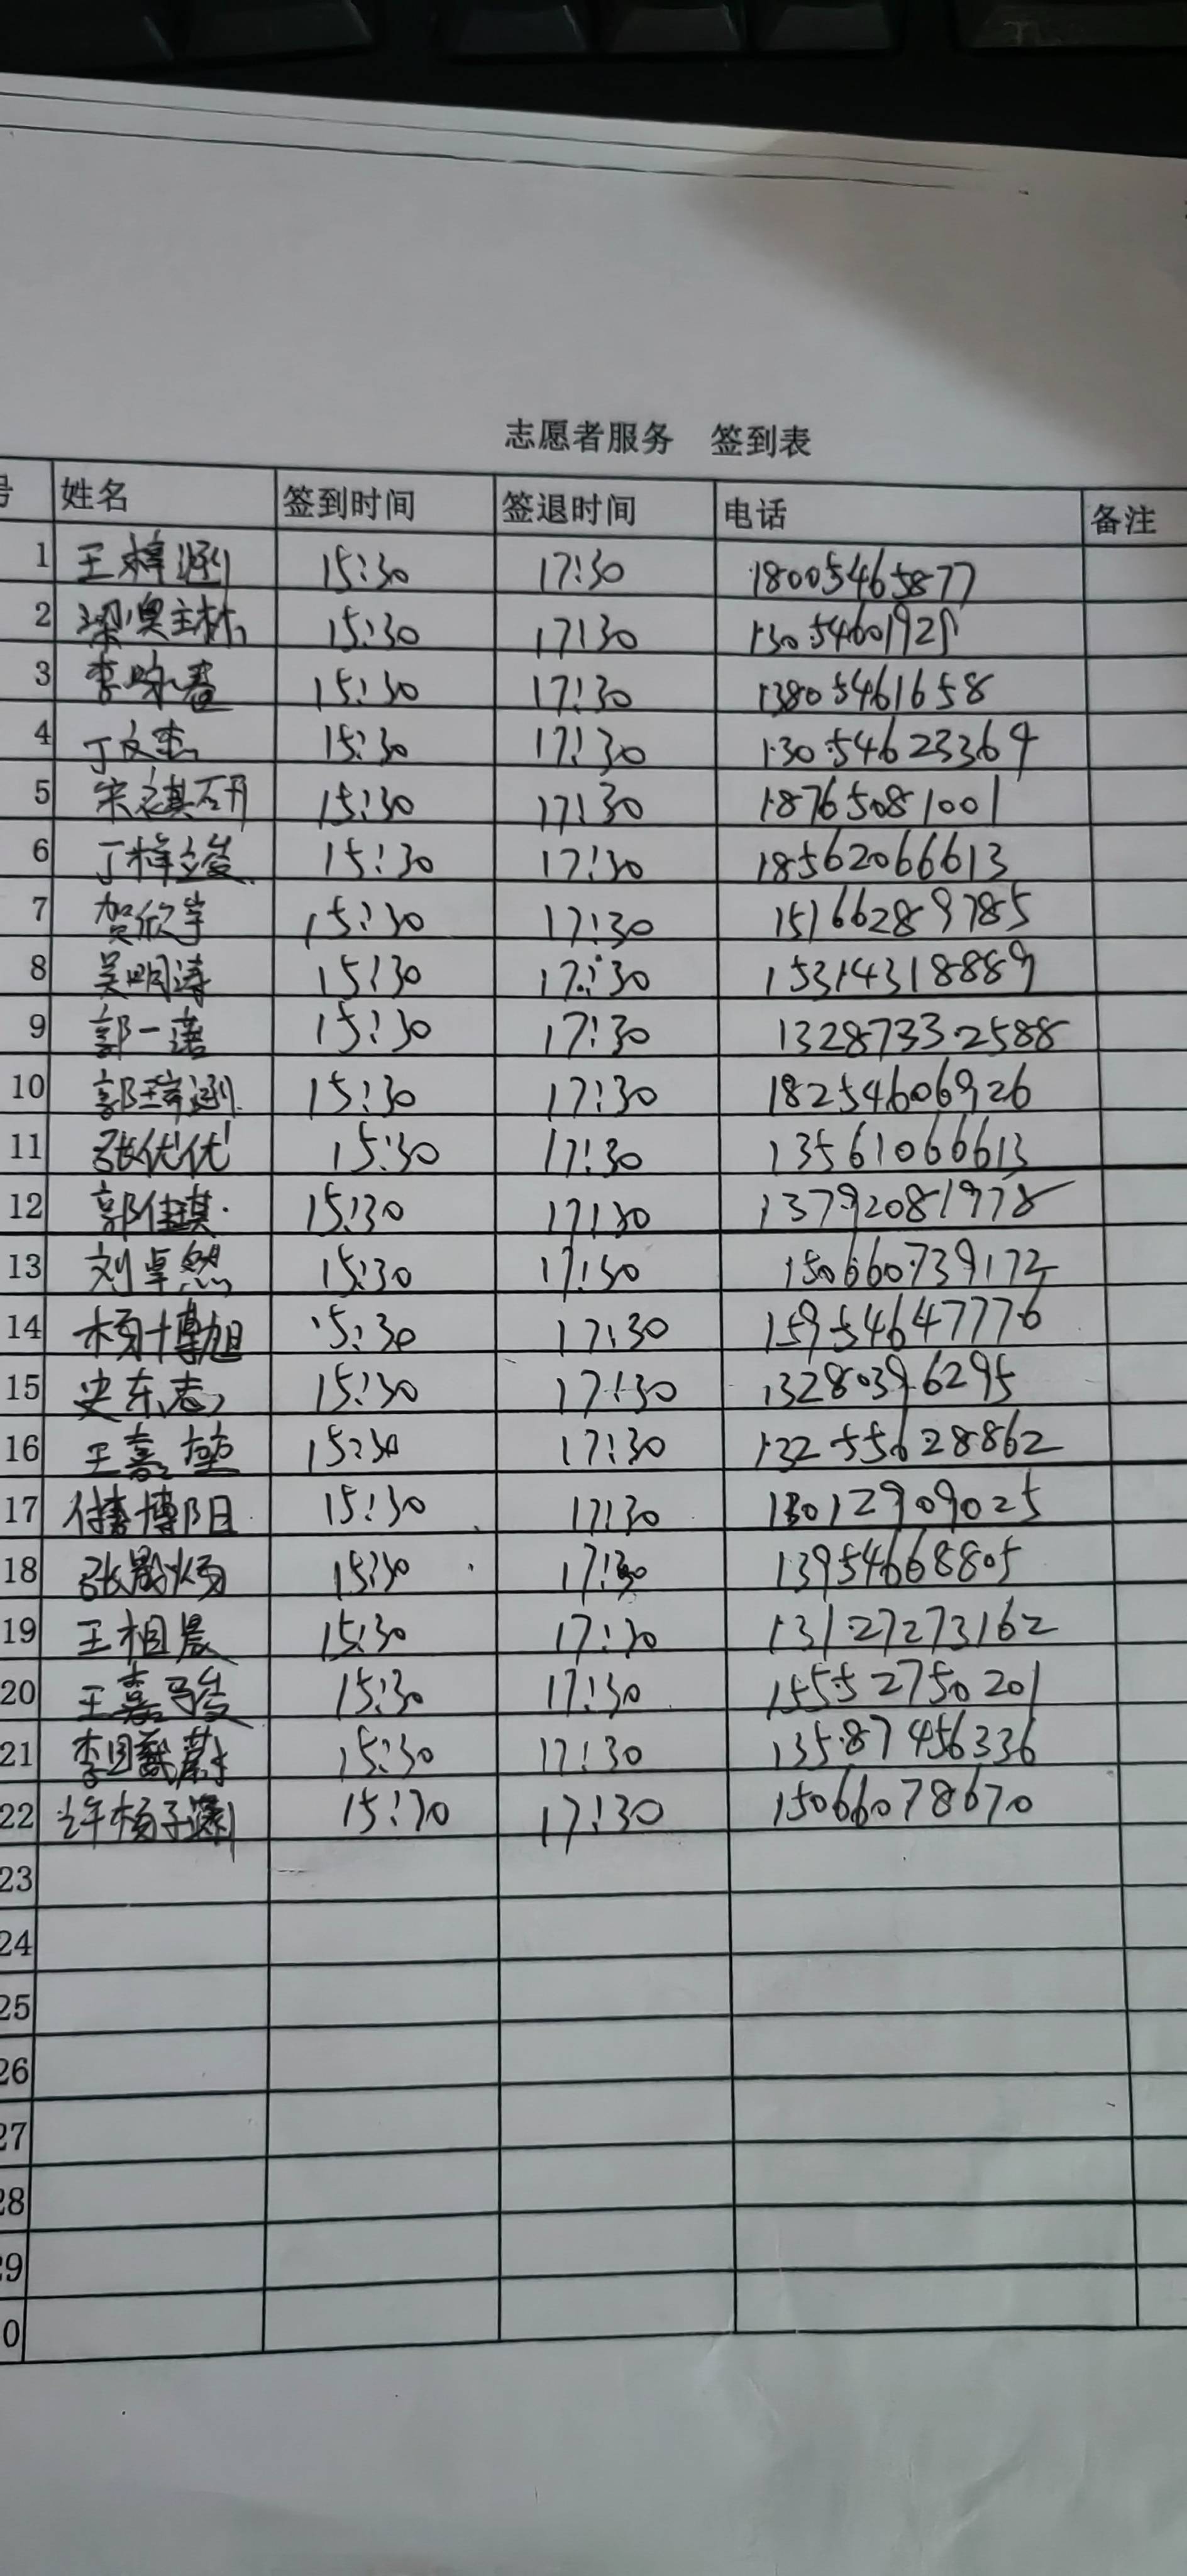 志愿者服务 签到表
号 姓名 签到时间 签退时间 电话 备注
1 王梓涵 15:30 17:30 18005465877
2 15:30 17:30
3 李咏春 15:30 17:30 13805461658
4 丁文杰 15:30 17:30 13054623369
5 宋祺研 15:30 17:30 18765081001
6 丁梓竣 15:30 17:30 18562066613
7 贺欣宇 15:30 17:30 15166289785
8 吴明涛 15:30 17:30 15314318889
9 郭一诺 15:30 17:30 13287332588
10 郭梓涵 15:30 17:30 18254606926
11 张优优 15:30 17:30 13561066613
12 郭佳琪 15:30 17:30 13792081978
13 刘卓然 15:30 17:30 150660739172
14 杨博旭 15:30 17:30 15954647776
15 史东志 15:30 17:30 13280396295
16 王嘉 15:30 17:30 13255628862
17 付博阳 15:30 17:30 13012909025
18 张 15:30 17:30 13954668805
19 王相晨 15:30 17:30 13127273162
20 王嘉骏 15:30 17:30 15552750201
21 李 15:30 17:30 13587456336
22 许杨子涵 15:30 17:30 15066078670
23
24
25
26
27
28
29
0